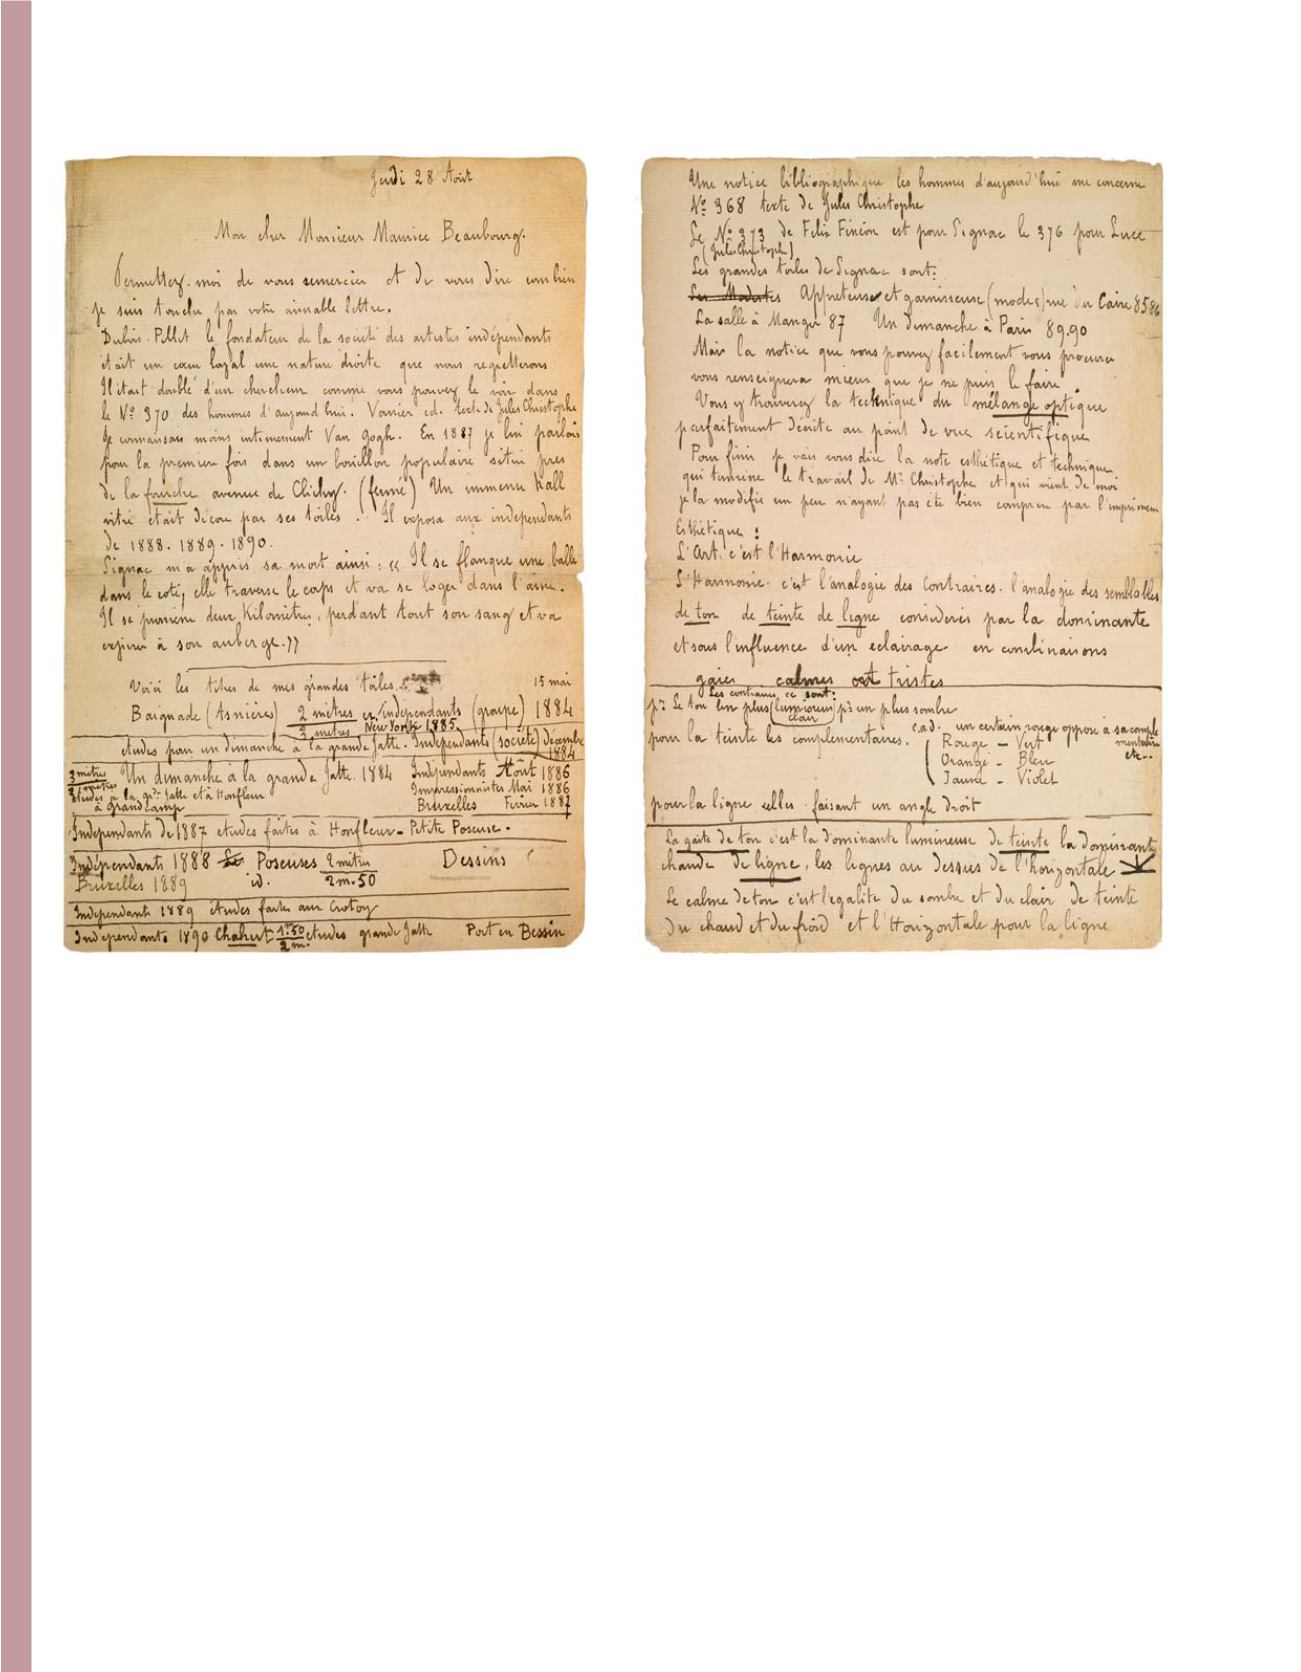 Jeudi 28 Août
Mon cher Monsieur Maurice Beaubourg.
Permettez-moi de vous remercier et de vous dire combien
je suis touché par votre aimable lettre.
Dubois-Pillet le fondateur de la société des artistes indépendants
était un cœur loyal une nature droite que nous regretterons
Il était doublé d'un chercheur comme vous pouvez le voir dans
le Nº 370 des hommes d'aujourd'hui. Vanier ed. texte de Jules Christophe
Je connaissais moins intimement Van Gogh. En 1887 je lui parlais
pour la première fois dans un bouillon populaire situé près
de la fourche avenue de Clichy. (fermé) Un immense hall
vitré était décoré par ses toiles. Il exposa aux indépendants
de 1888. 1889. 1890.
Signac m'a appris sa mort ainsi : « Il se flanque une balle
dans le coté, elle traverse le corps et va se loger dans l'aine.
Il se promène deux Kilomètres, perdant tout son sang et va
expirer à son auberge.»
Voici les titres de mes grandes toiles. 15 mai
Baignade (Asnières) 2 mètres indépendants (groupe) 1884
3 metres New York 1885
études pour un dimanche à la grande Jatte. Indépendants (société) Décembre
1884
3 mètres Un dimanche à la grande Jatte. 1884 Indépendants Août 1886
2 mètres Impressionnistes Mai 1886
Etudes à la gde Jatte et à Honfleur
à Grandcamp Bruxelles Février 1887
Indépendants de 1887 etudes faites à Honfleur - Petite Poseuse.
Indépendants 1888 Poseuses 2 mètres Dessins
Bruxelles 1889 id. 2m.50
Indépendants 1889 études faites au Crotoy
Indépendants 1890 Chahut 1m50 etudes grande Jatte Port en Bessin
2m.
Une notice bibliographique les hommes d'aujourd'hui me concerne
Nº 368 texte de Jules Christophe
Le Nº 373 de Felix Fénéon est pour Signac le 376 pour Luce
(Jules Christoph)
Les grandes toiles de Signac sont:
Les Modistes Appreteuse et garnisseuse (modes) rue du Caire 85 86
La salle à Manger 87 Un dimanche à Paris 89.90
Mais la notice que vous pouvez facilement vous procurer
vous renseignera mieux que je ne puis le faire.
Vous y trouverez la technique du mélange optique
parfaitement décrite au point de vue scientifique
Pour finir je vais vous dire la note esthétique et technique
qui termine le travail de Mr Christophe et qui vient de moi
je la modifie un peu n'ayant pas été bien compris par l'imprimeur
Esthétique :
L'Art. c'est l'Harmonie
L'Harmonie. c'est l'analogie des Contraires. l'analogie des semblables
de ton de teinte de ligne considérés par la dominante
et sous l'influence d'un eclairage en combinaisons
gaies calmes ou tristes
Les contraires ce sont:
pr. Le ton un plus (lumineux) pr un plus sombre
clair
c.a.d. un certain rouge opposé à sa complé
pour la teinte les complémentaires. mentaire
Rouge - Vert etc..
Orange - Bleu
Jaune - Violet
pour la ligne celles faisant un angle droit
La gaité de ton c'est la dominante lumineuse de teinte la dominante
chaude de ligne, les lignes au dessus de l'horizontale
Le calme de ton c'est l'égalité du sombre et du clair de teinte
du chaud et du froid et l'Horizontale pour la ligne